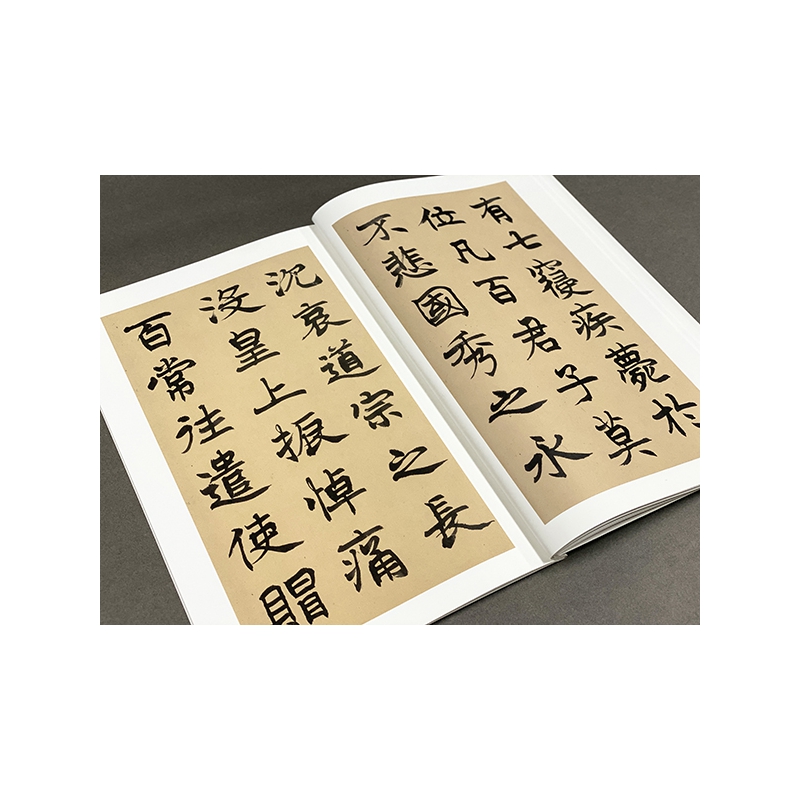 有七寢疾薨於
位凡百君子莫
不悲國秀之永
沉哀道宗之長
没皇上振悼痛
百常往遣使賵